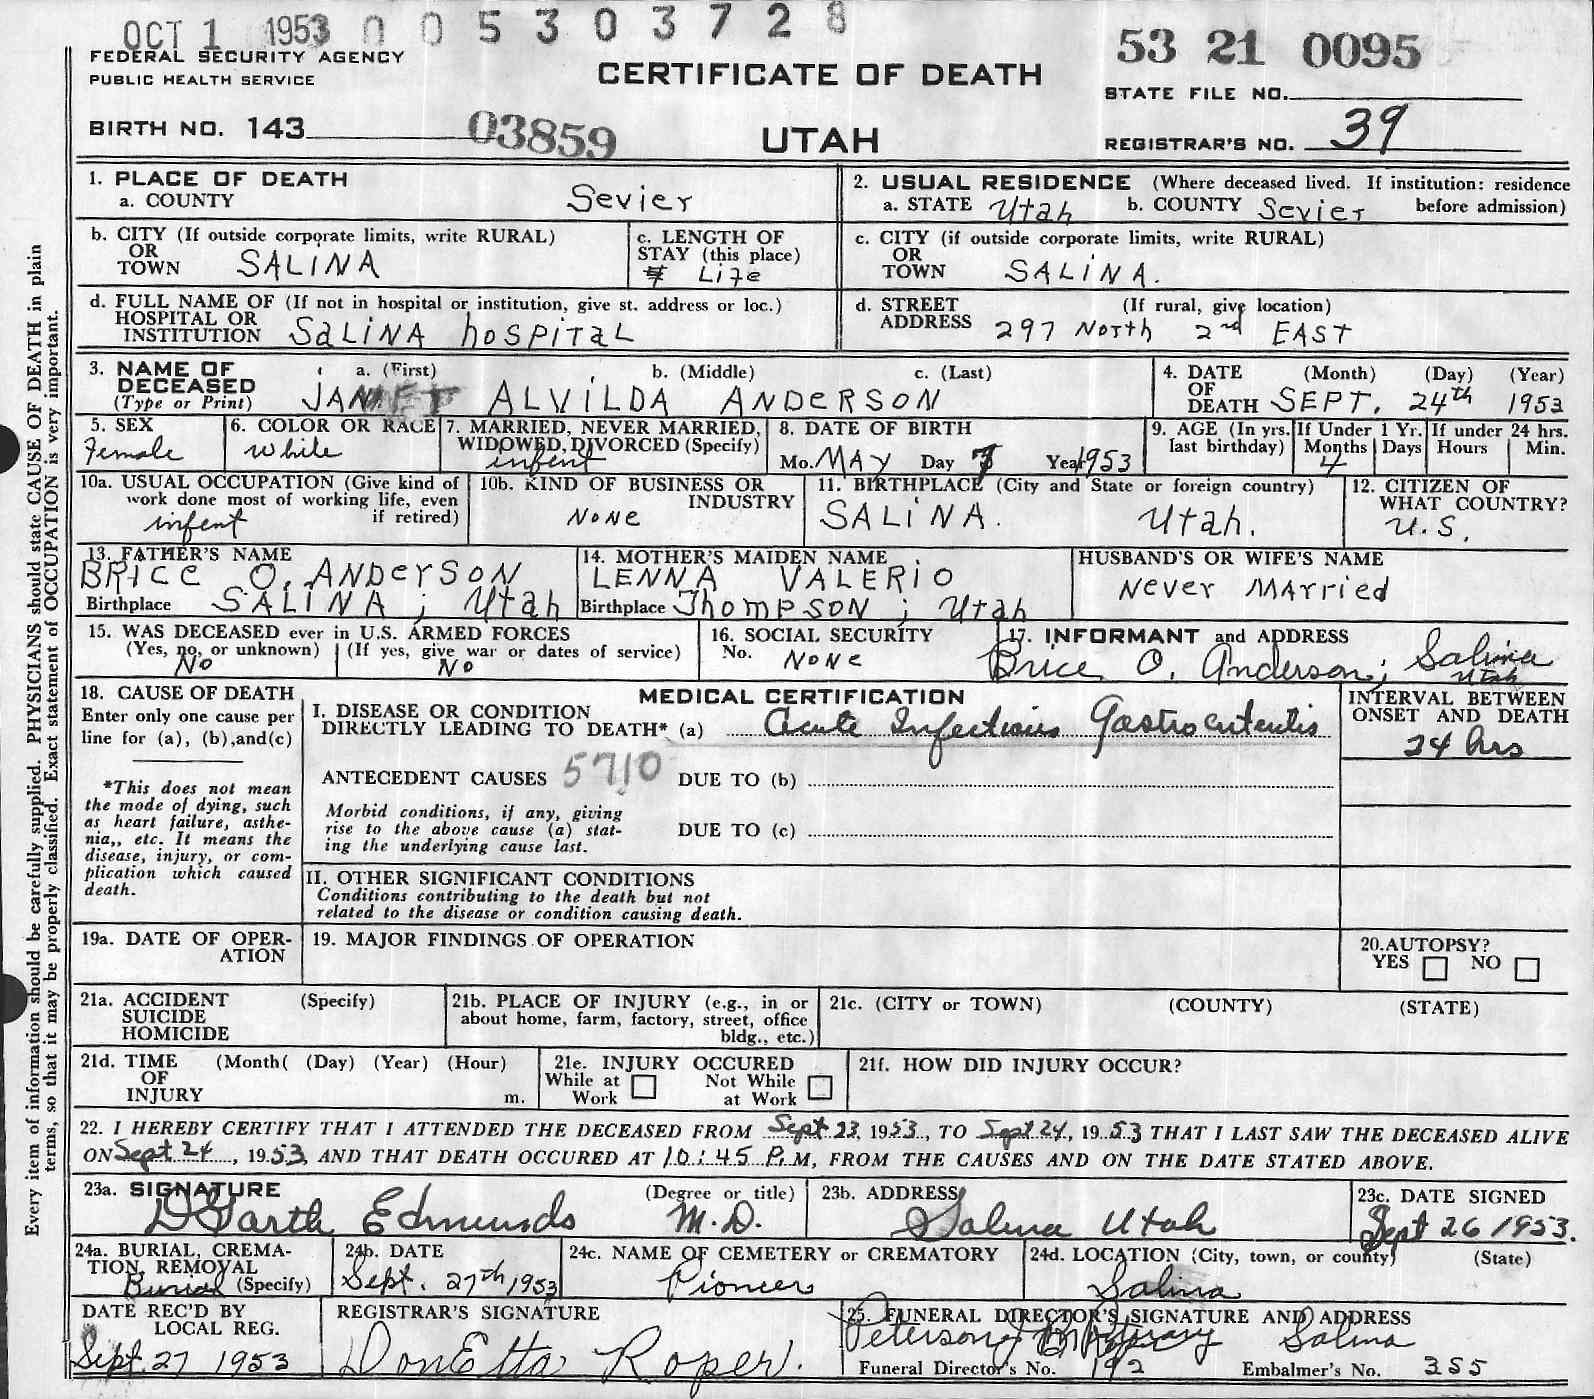 OCT 1 1953 0 0 5 3 0 3 7 2 8
FEDERAL SECURITY AGENCY
PUBLIC HEALTH SERVICE
CERTIFICATE OF DEATH
53 21 0095
STATE FILE NO.
BIRTH NO. 143 03859
UTAH
REGISTRAR'S NO. 39
1. PLACE OF DEATH
a. COUNTY Sevier
2. USUAL RESIDENCE (Where deceased lived. If institution: residence before admission)
a. STATE Utah b. COUNTY Sevier
b. CITY (If outside corporate limits, write RURAL)
OR
TOWN SALINA
c. LENGTH OF
STAY (this place)
Life
c. CITY (if outside corporate limits, write RURAL)
OR
TOWN SALINA.
d. FULL NAME OF (If not in hospital or institution, give st. address or loc.)
HOSPITAL OR
INSTITUTION SALINA hospital
d. STREET (If rural, give location)
ADDRESS 297 North 2nd EAST
3. NAME OF DECEASED
(Type or Print)
a. (First) b. (Middle) c. (Last)
JANET ALVILDA ANDERSON
4. DATE OF DEATH (Month) (Day) (Year)
SEPT. 24th 1953
5. SEX
Female
6. COLOR OR RACE
White
7. MARRIED, NEVER MARRIED,
WIDOWED, DIVORCED (Specify)
infent
8. DATE OF BIRTH
Mo. MAY Day Year 1953
9. AGE (In yrs. last birthday)
If Under 1 Yr. If under 24 hrs.
Months Days Hours Min.
4
10a. USUAL OCCUPATION (Give kind of
work done most of working life, even
if retired)
infent
10b. KIND OF BUSINESS OR
INDUSTRY
None
11. BIRTHPLACE (City and State or foreign country)
SALINA. Utah.
12. CITIZEN OF
WHAT COUNTRY?
U.S.
13. FATHER'S NAME
BRICE O. ANDERSON
Birthplace SALINA; Utah
14. MOTHER'S MAIDEN NAME
LENNA VALERIO
Birthplace Thompson; Utah
HUSBAND'S OR WIFE'S NAME
Never Married
15. WAS DECEASED ever in U.S. ARMED FORCES
(Yes, no, or unknown) (If yes, give war or dates of service)
No No
16. SOCIAL SECURITY
No. None
17. INFORMANT and ADDRESS
Brice O. Anderson; Salina
Utah
18. CAUSE OF DEATH
Enter only one cause per
line for (a), (b), and (c)
*This does not mean
the mode of dying, such
as heart failure, asthe-
nia,, etc. It means the
disease, injury, or com-
plication which caused
death.
MEDICAL CERTIFICATION
I. DISEASE OR CONDITION
DIRECTLY LEADING TO DEATH* (a) Acute Infectious Gastroenteritis
ANTECEDENT CAUSES 5710 DUE TO (b)
Morbid conditions, if any, giving
rise to the above cause (a) stat-
ing the underlying cause last.
DUE TO (c)
II. OTHER SIGNIFICANT CONDITIONS
Conditions contributing to the death but not
related to the disease or condition causing death.
INTERVAL BETWEEN
ONSET AND DEATH
24 hrs
19a. DATE OF OPER-
ATION
19. MAJOR FINDINGS OF OPERATION
20. AUTOPSY?
YES NO
21a. ACCIDENT (Specify)
SUICIDE
HOMICIDE
21b. PLACE OF INJURY (e.g., in or
about home, farm, factory, street, office
bldg., etc.)
21c. (CITY or TOWN) (COUNTY) (STATE)
21d. TIME (Month( (Day) (Year) (Hour)
OF
INJURY m.
21e. INJURY OCCURED
While at Work Not While at Work
21f. HOW DID INJURY OCCUR?
22. I HEREBY CERTIFY THAT I ATTENDED THE DECEASED FROM Sept 23, 1953, TO Sept 24, 1953 THAT I LAST SAW THE DECEASED ALIVE
ON Sept 24, 1953, AND THAT DEATH OCCURED AT 10:45 P.M, FROM THE CAUSES AND ON THE DATE STATED ABOVE.
23a. SIGNATURE (Degree or title)
D Garth Edmunds M.D.
23b. ADDRESS
Salina Utah
23c. DATE SIGNED
Sept 26 1953.
24a. BURIAL, CREMA-
TION, REMOVAL
Burial (Specify)
24b. DATE
Sept. 27th 1953
24c. NAME OF CEMETERY or CREMATORY
Pioneer
24d. LOCATION (City, town, or county) (State)
Salina
DATE REC'D BY
LOCAL REG.
Sept. 27 1953
REGISTRAR'S SIGNATURE
DonEtta Roper.
25. FUNERAL DIRECTOR'S SIGNATURE AND ADDRESS
Peterson Mortuary Salina
Funeral Director's No. 192 Embalmer's No. 355
Every item of information should be carefully supplied. PHYSICIANS should state CAUSE OF DEATH in plain
terms, so that it may be properly classified. Exact statement of OCCUPATION is very important.